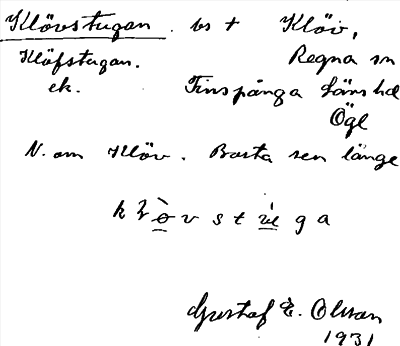 Klövstugan. bs t Klöv,
Klöfstugan. Regna sn
ek. Finspånga läns hd
Ögl
N. om Klöv. Borta sen länge
Gustaf E. Olsson
1931